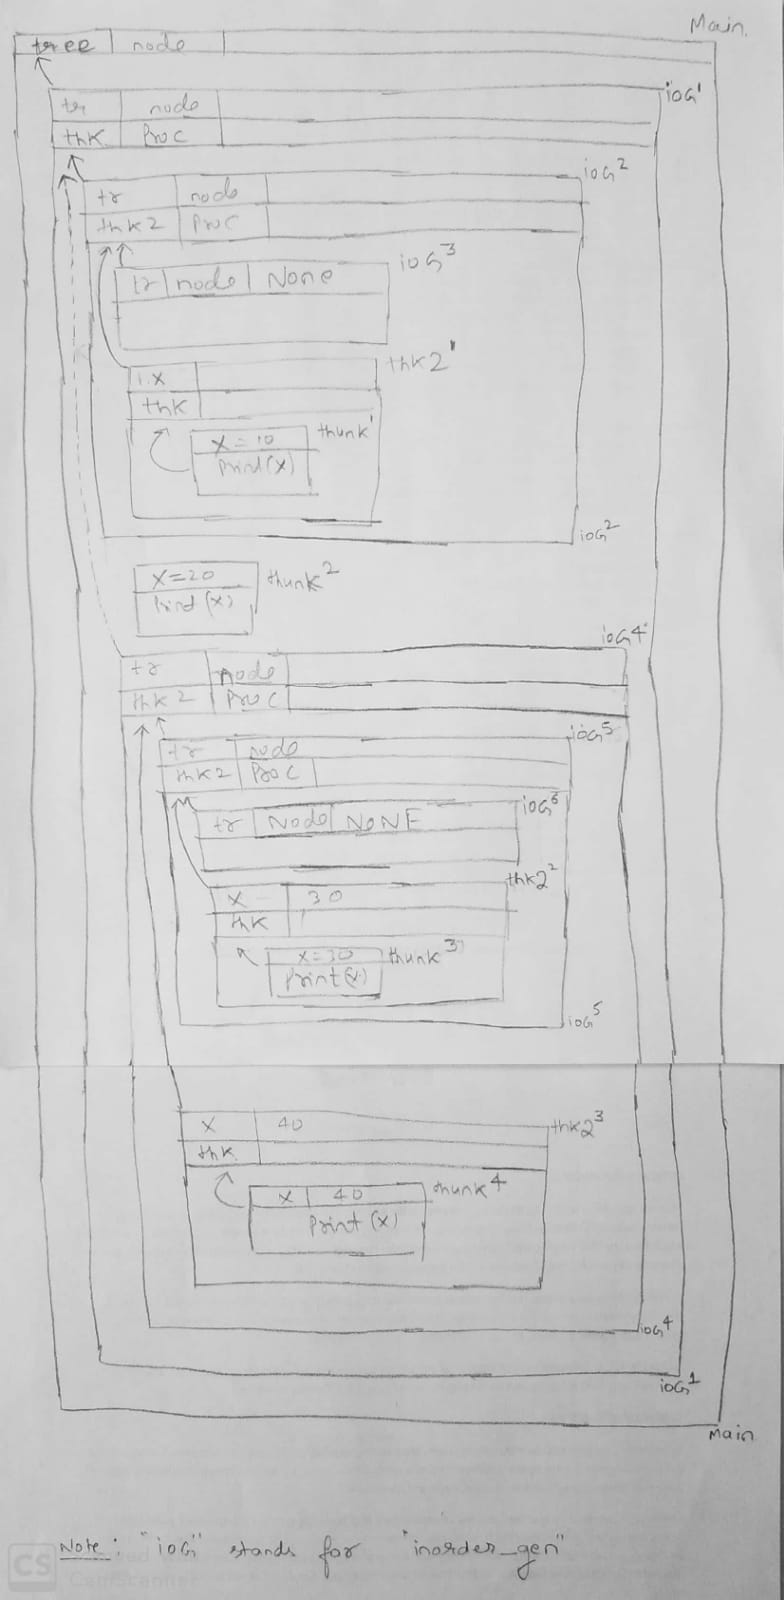 Main.
tree node
ioG1
tr node
thk Proc
ioG2
tr node
thk2 Proc
ioG3
tr node None
thk2'
x
thk
thunk'
x=10
Print(x)
ioG2
x=20 thunk2
Print(x)
ioG4
tr node
thk2 Proc
ioG5
tr node
thk2 Proc
ioG6
tr Node NONE
thk2 2
x 30
thk
x=30 thunk3
Print(x)
ioG5
x 40 thk2 3
thk
x 40 thunk4
Print(x)
ioG4
ioG1
Main
Note: "ioG" stands for "inorder_gen"
CS
CamScanner